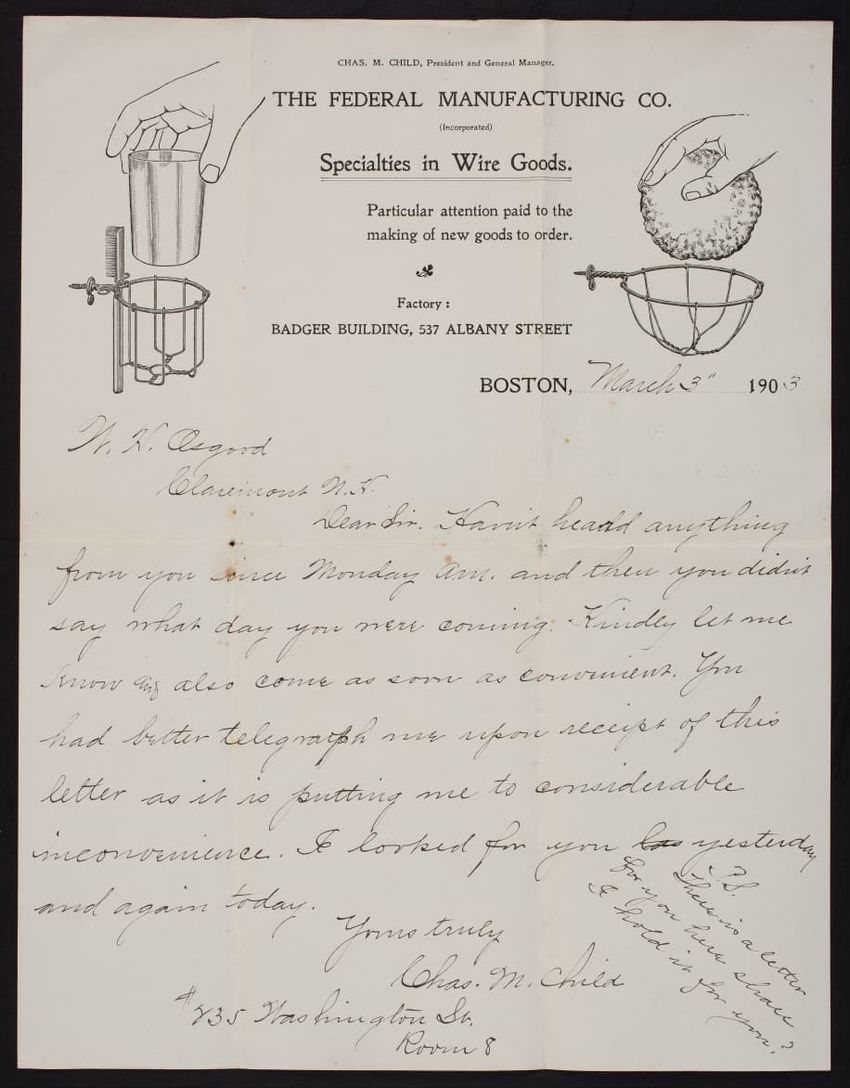 CHAS. M. CHILD, President and General Manager.
THE FEDERAL MANUFACTURING CO.
(Incorporated)
Specialties in Wire Goods.
Particular attention paid to the
making of new goods to order.
Factory:
BADGER BUILDING, 537 ALBANY STREET
BOSTON, March 3" 1903
W. H. Osgood
Claremont N.H.
Dear Sir. Havn't heard anything
from you since Monday Am. and then you didn't
say what day you were coming. Kindly let me
know and also come as soon as convenient. You
had better telegraph me upon receipt of this
letter as it is putting me to considerable
inconvenience. I looked for you las yesterday
and again today.
Yours truly
Chas. M. Child
#835 Washington St.
Room 8
P.S.
There is a letter
for you here shall
I hold it for you?